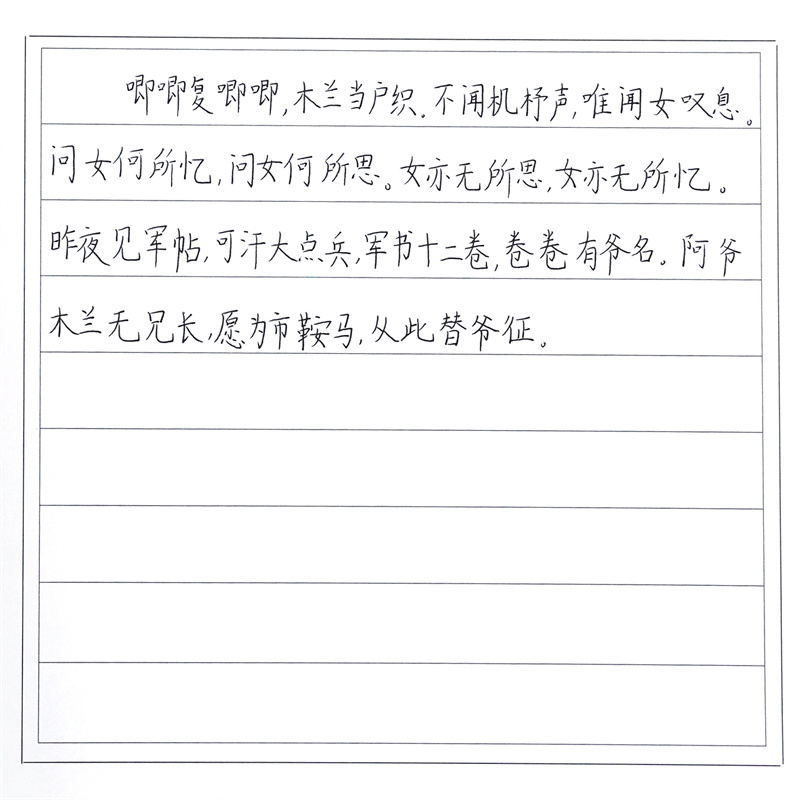 唧唧复唧唧,木兰当户织.不闻机杼声,唯闻女叹息。
问女何所忆,问女何所思。女亦无所思,女亦无所忆。
昨夜见军帖,可汗大点兵,军书十二卷,卷卷有爷名。阿爷
木兰无兄长,愿为市鞍马,从此替爷征。